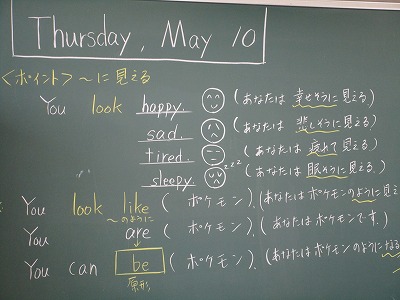 Thursday, May 10
<ポイント> 〜に見える
You look happy. (あなたは 幸せそうに見える)
sad. (あなたは 悲しそうに見える)
tired. (あなたは 疲れて見える)
sleepy. zzzz (あなたは 眠そうに見える.)
You look like (ポケモン). (あなたはポケモンのように見え
〜のように
You are (ポケモン). (あなたはポケモンです.)
You can be (ポケモン). (あなたはポケモンのようになる
原形